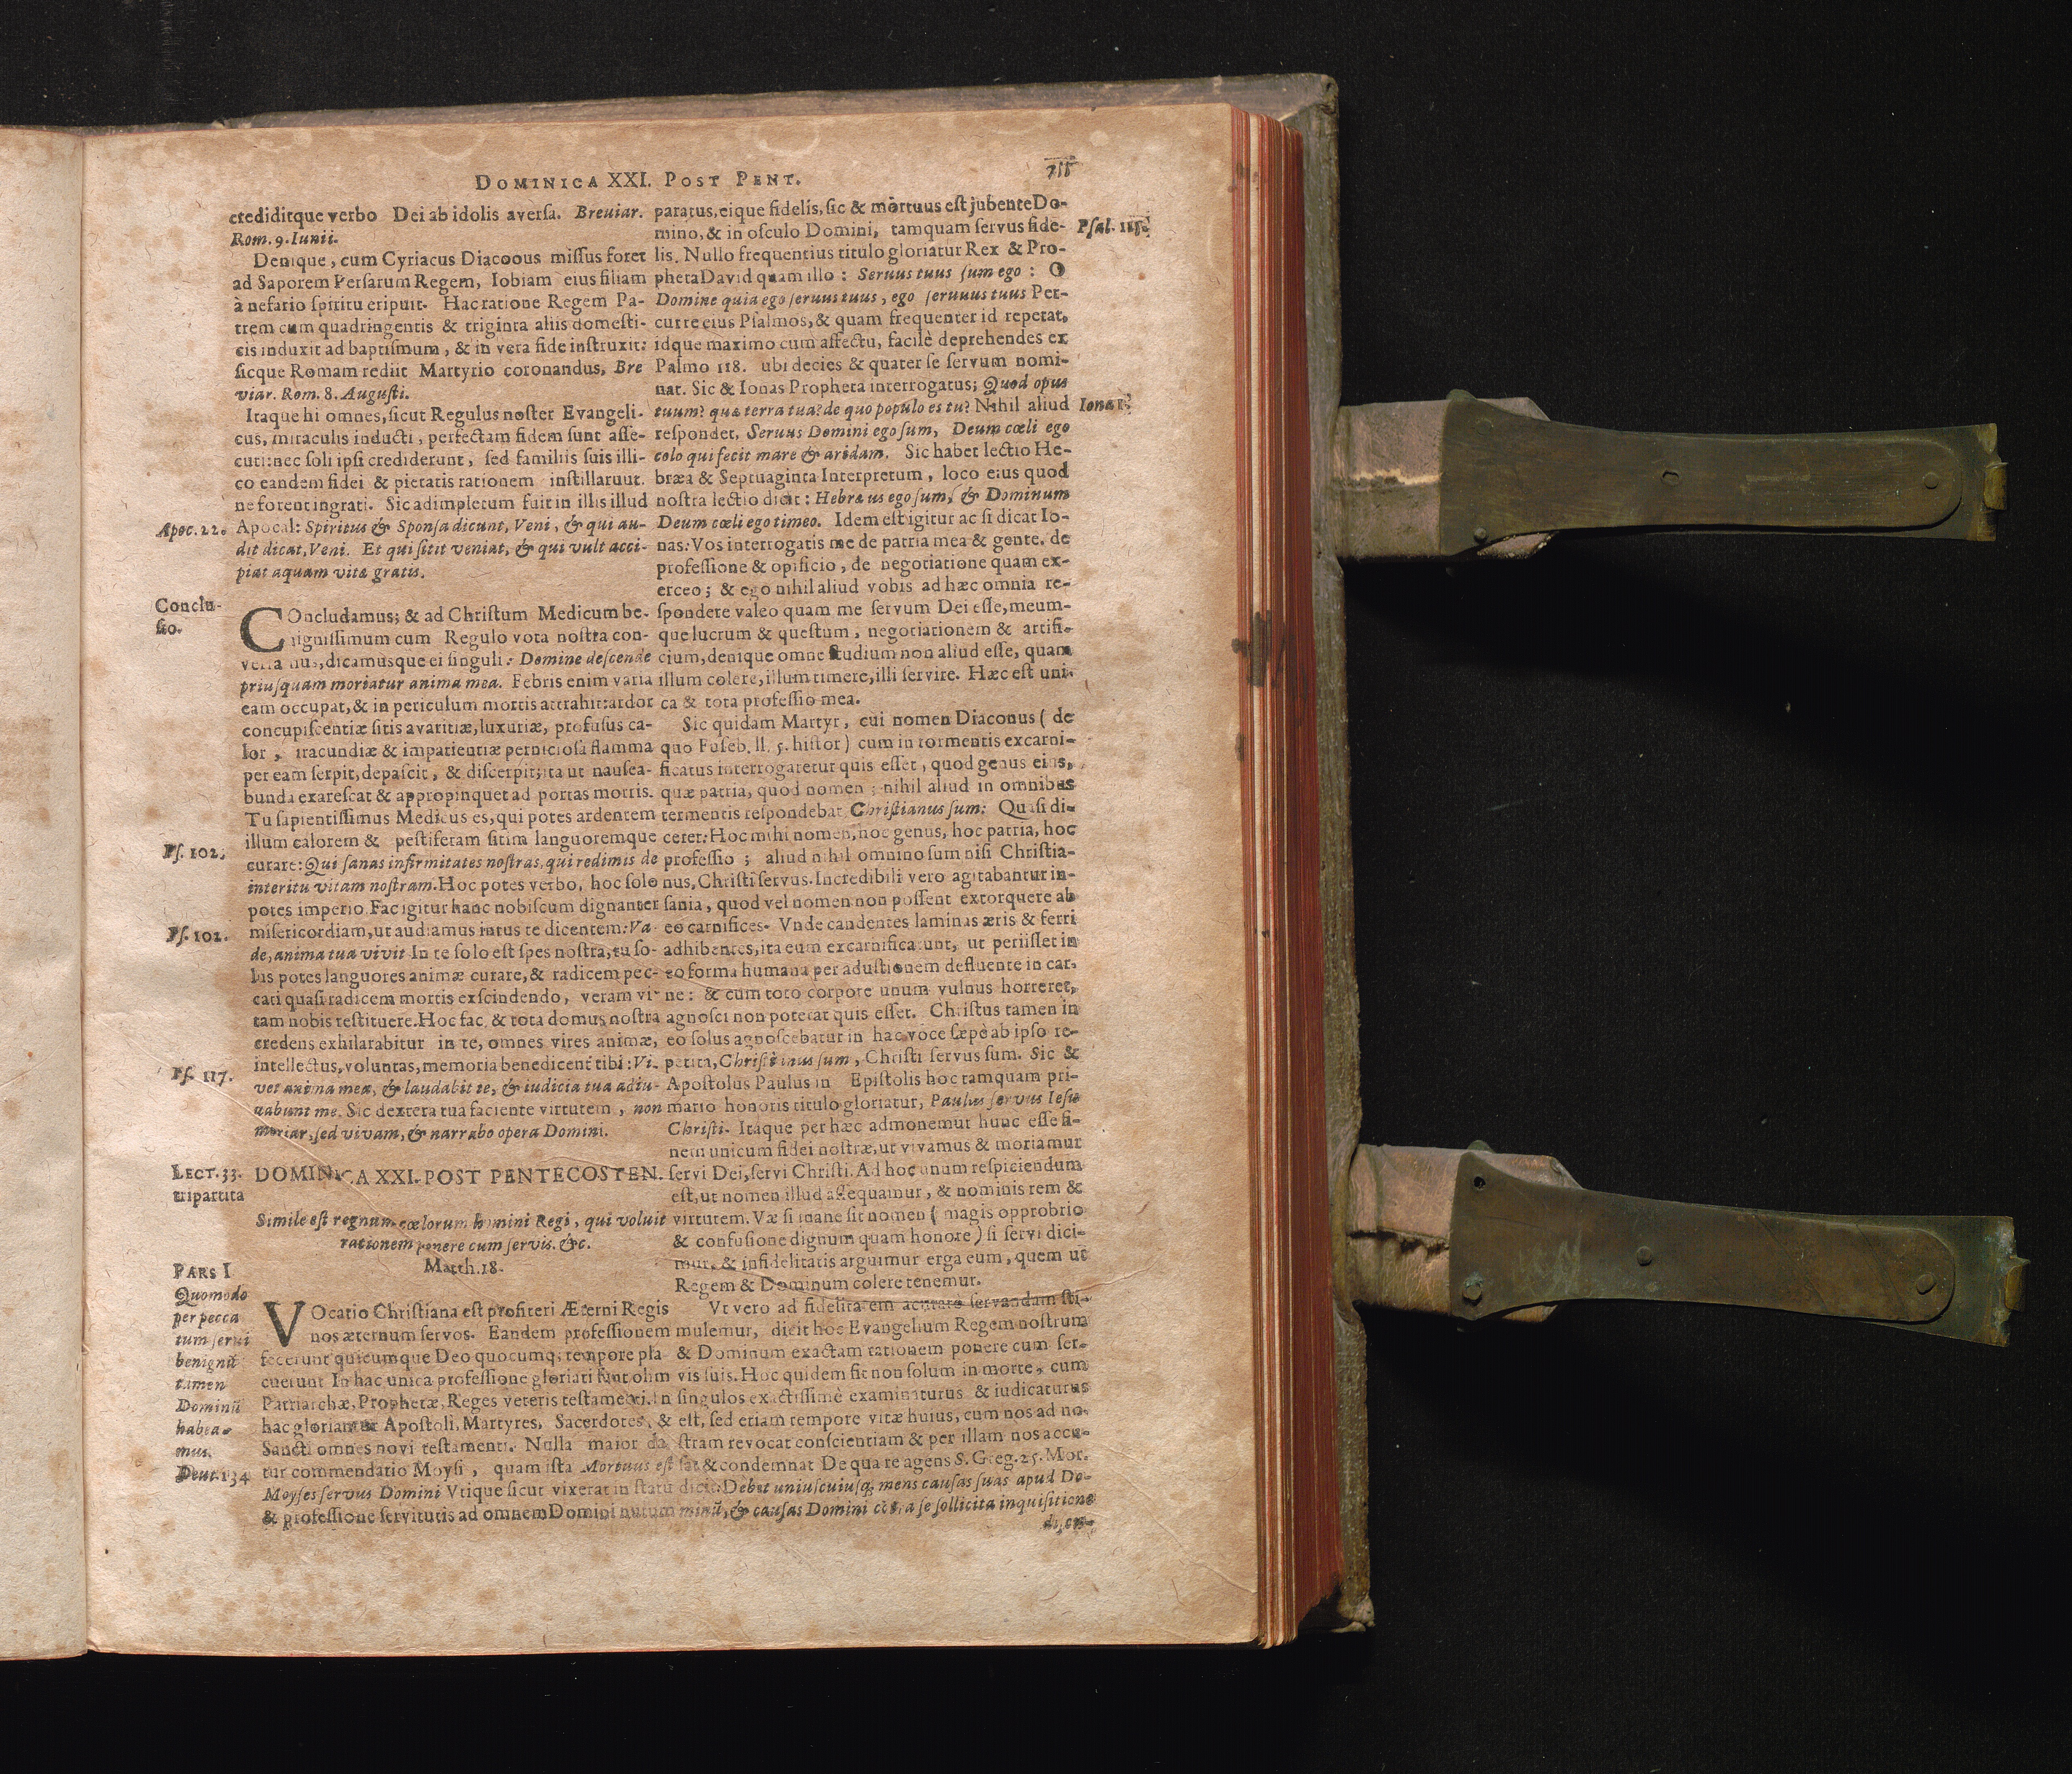 DOMINICA XXI. POST PENT.
crediditque verbo Dei ab idolis aversa. Breuiar.
Rom. 9. Iunii.
Denique, cum Cyriacus Diacoous missus foret
ad Saporem Persarum Regem, Iobiam eius filiam
à nefario spiritu eripuit. Hac ratione Regem Pa-
trem cum quadringentis & triginta aliis domesti-
cis induxit ad baptismum, & in vera fide instruxit:
sicque Romam rediit Martyrio coronandus, Bre
viar. Rom. 8. Augusti.
Itaque hi omnes, sicut Regulus noster Evangeli-
cus, miraculis inducti, perfectam fidem sunt asse-
cuti: nec soli ipsi crediderunt, sed familiis suis illi-
co eandem fidei & pietatis rationem instillarunt.
ne forent ingrati. Sic adimpletum fuit in illis illud
Apoc. 22. Apocal: Spiritus & Sponsa dicunt, Veni, & qui au-
dit dicat, Veni. Et qui sitit veniat, & qui vult acci-
piat aquam vitæ gratis.
Conclu-
sio.
COncludamus; & ad Christum Medicum be-
nignissimum cum Regulo vota nostra con-
dicamusque ei singuli: Domine descende
priusquam moriatur anima mea. Febris enim varia
eam occupat, & in periculum mortis attrahit: ardor
concupiscentiæ sitis avaritiæ, luxuriæ, profusus ca-
lor, iracundiæ & impatientiæ perniciosa flamma
per eam serpit, depascit, & discerpit; ita ut nausea-
bunda exarescat & appropinquet ad portas mortis.
Tu sapientissimus Medicus es, qui potes ardentem
illum calorem & pestiferam sitim languoremque
Ps. 102. curare: Qui sanas infirmitates nostras, qui redimis de
interitu vitam nostram. Hoc potes verbo, hoc solo
potes imperio. Fac igitur hanc nobiscum dignanter
Ps. 102. misericordiam, ut audiamus intus te dicentem: Va-
de, anima tua vivit. In te solo est spes nostra, tu so-
lus potes languores animæ curare, & radicem pec-
cati quasi radicem mortis exscindendo, veram vi-
tam nobis restituere. Hoc fac, & tota domus nostra
credens exhilarabitur in te, omnes vires animæ,
intellectus, voluntas, memoria benedicent tibi: Vi-
Ps. 117. vet anima mea, & laudabit te, & iudicia tua adiu-
uabunt me. Sic dextera tua faciente virtutem, non
moriar, sed vivam, & narrabo opera Domini.
LECT. 33.
tripartita
DOMINICA XXI. POST PENTECOSTEN.
Simile est regnum cœlorum homini Regi, qui voluit
rationem ponere cum servis. &c.
Matth. 18.
PARS I
Quomodo
per pecca
tum serui
benignũ
tamen
Dominũ
habea-
mus.
VOcatio Christiana est profiteri Æterni Regis
nos æternum servos. Eandem professionem
fecerunt quicumque Deo quocumq; tempore pla-
cuerunt. In hac unica professione gloriati sunt olim
Patriarchæ, Prophetæ, Reges veteris testamenti. In
hac gloriantur Apostoli, Martyres, Sacerdotes, &
Sancti omnes novi testamenti. Nulla maior da
Deut. 134 tur commendatio Moysi, quam ista Mortuus est
Moyses servus Domini Vtique sicut vixerat in statu
& professione servitutis ad omnem Domini nutum
paratus, eique fidelis, sic & mortuus est jubente Do-
mino, & in osculo Domini, tamquam servus fide- Psal.
lis. Nullo frequentius titulo gloriatur Rex & Pro-
pheta David quam illo: Seruus tuus sum ego: O
Domine quia ego seruus tuus, ego seruuus tuus Per-
curre eius Psalmos, & quam frequenter id repetat,
idque maximo cum affectu, facilè deprehendes ex
Palmo 118. ubi decies & quater se servum nomi-
nat. Sic & Ionas Propheta interrogatus; Quod opus
tuum? quæ terra tua? de quo populo es tu? Nihil aliud Ionæ 1.
respondet, Seruus Domini ego sum, Deum cœli ego
colo qui fecit mare & aridam. Sic habet lectio He-
bræa & Septuaginta Interpretum, loco eius quod
nostra lectio dicit: Hebræus ego sum, & Dominum
Deum cœli ego timeo. Idem est igitur ac si dicat Io-
nas: Vos interrogatis me de patria mea & gente, de
professione & opificio, de negotiatione quam ex-
erceo; & ego nihil aliud vobis ad hæc omnia re-
spondere valeo quam me servum Dei esse, meum-
que lucrum & questum, negotiationem & artifi-
cium, denique omne studium non aliud esse, quam
illum colere, illum timere, illi servire. Hæc est uni-
ca & tota professio mea.
Sic quidam Martyr, cui nomen Diaconus (de
quo Euseb. ll. 5. histor) cum in tormentis excarni-
ficatus interrogaretur quis esset, quod genus eius,
quæ patria, quod nomen; nihil aliud in omnibus
termentis respondebat Christianus sum: Quasi di-
ceret: Hoc mihi nomen, hoc genus, hoc patria, hoc
professio; aliud nihil omnino sum nisi Christia-
nus, Christi servus. Incredibili vero agitabantur in-
sania, quod vel nomen non possent extorquere ab
eo carnifices. Vnde candentes laminas æris & ferri
adhibentes, ita eum excarnificarunt, ut periisset in
eo forma humana per adustionem defluente in car-
ne: & cum toto corpore unum vulnus horreret,
agnosci non poterat quis esset. Christus tamen in
eo solus agnoscebatur in hac voce sæpè ab ipso re-
petita, Christianus sum, Christi servus sum. Sic &
Apostolus Paulus in Epistolis hoc tamquam pri-
mario honoris titulo gloriatur, Paulus servus Iesu
Christi. Itaque per hæc admonemur hunc esse fi-
nem unicum fidei nostræ, ut vivamus & moriamur
servi Dei, servi Christi. Ad hoc unum respiciendum
est, ut nomen illud assequamur, & nominis rem &
virtutem. Væ si inane sit nomen (magis opprobrio
& confusione dignum quam honore) si servi dici-
mur, & infidelitatis arguimur erga eum, quem ut
Regem & Dominum colere tenemur.
Vt vero ad fidelitatem acuratè servandam sti-
mulemur, dicit hoc Evangelium Regem nostrum
& Dominum exactam rationem ponere cum ser-
vis suis. Hoc quidem fit non solum in morte, cum
singulos exactissimè examinaturus & iudicaturus
est, sed etiam tempore vitæ huius, cum nos ad no-
stram revocat conscientiam & per illam nos accu-
sat & condemnat De qua re agens S. Greg. 25. Mor.
dicit: Debet uniuscuiusq; mens causas suas apud Do-
minũ, & causas Domini cõtra se sollicita inquisitione